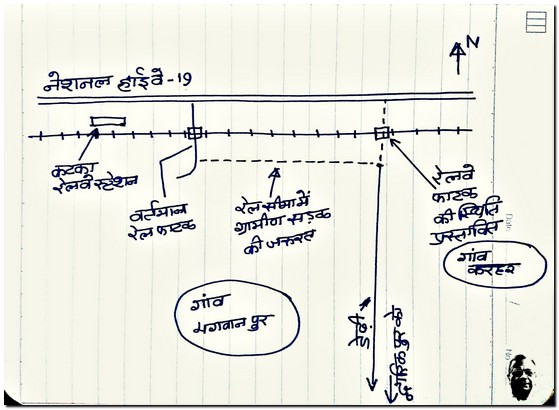 N
नेशनल हाईवे-19
कटका
रेलवे स्टेशन
वर्तमान
रेल फाटक
रेल सीमा में
ग्रामीण सड़क
की जरूरत
रेलवे
फाटक
की स्थिति
प्रस्तावित
गांव
करहर
गांव
भगवानपुर